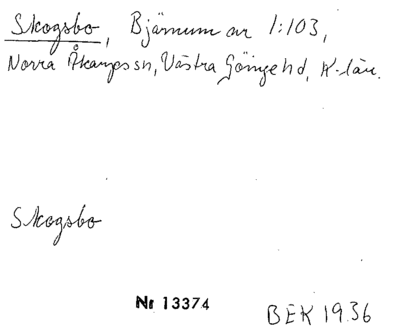 Skogsbo, Bjärnum av 1:103,
Norra Åkarps sn, Västra Göinge hd, K-län.
Skogsbo
Nr 13374
BEK 1936